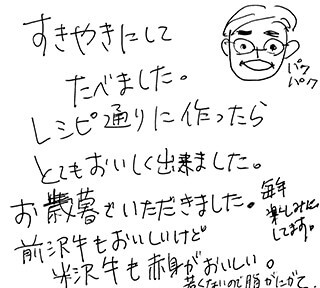 すきやきにして
たべました。
パク
パク
レシピ通りに作ったら
とてもおいしく出来ました。
お歳暮でいただきました。
毎年
楽しみに
してます。
前沢牛もおいしいけど
米沢牛も赤身がおいしい。
若くないので脂がにがて